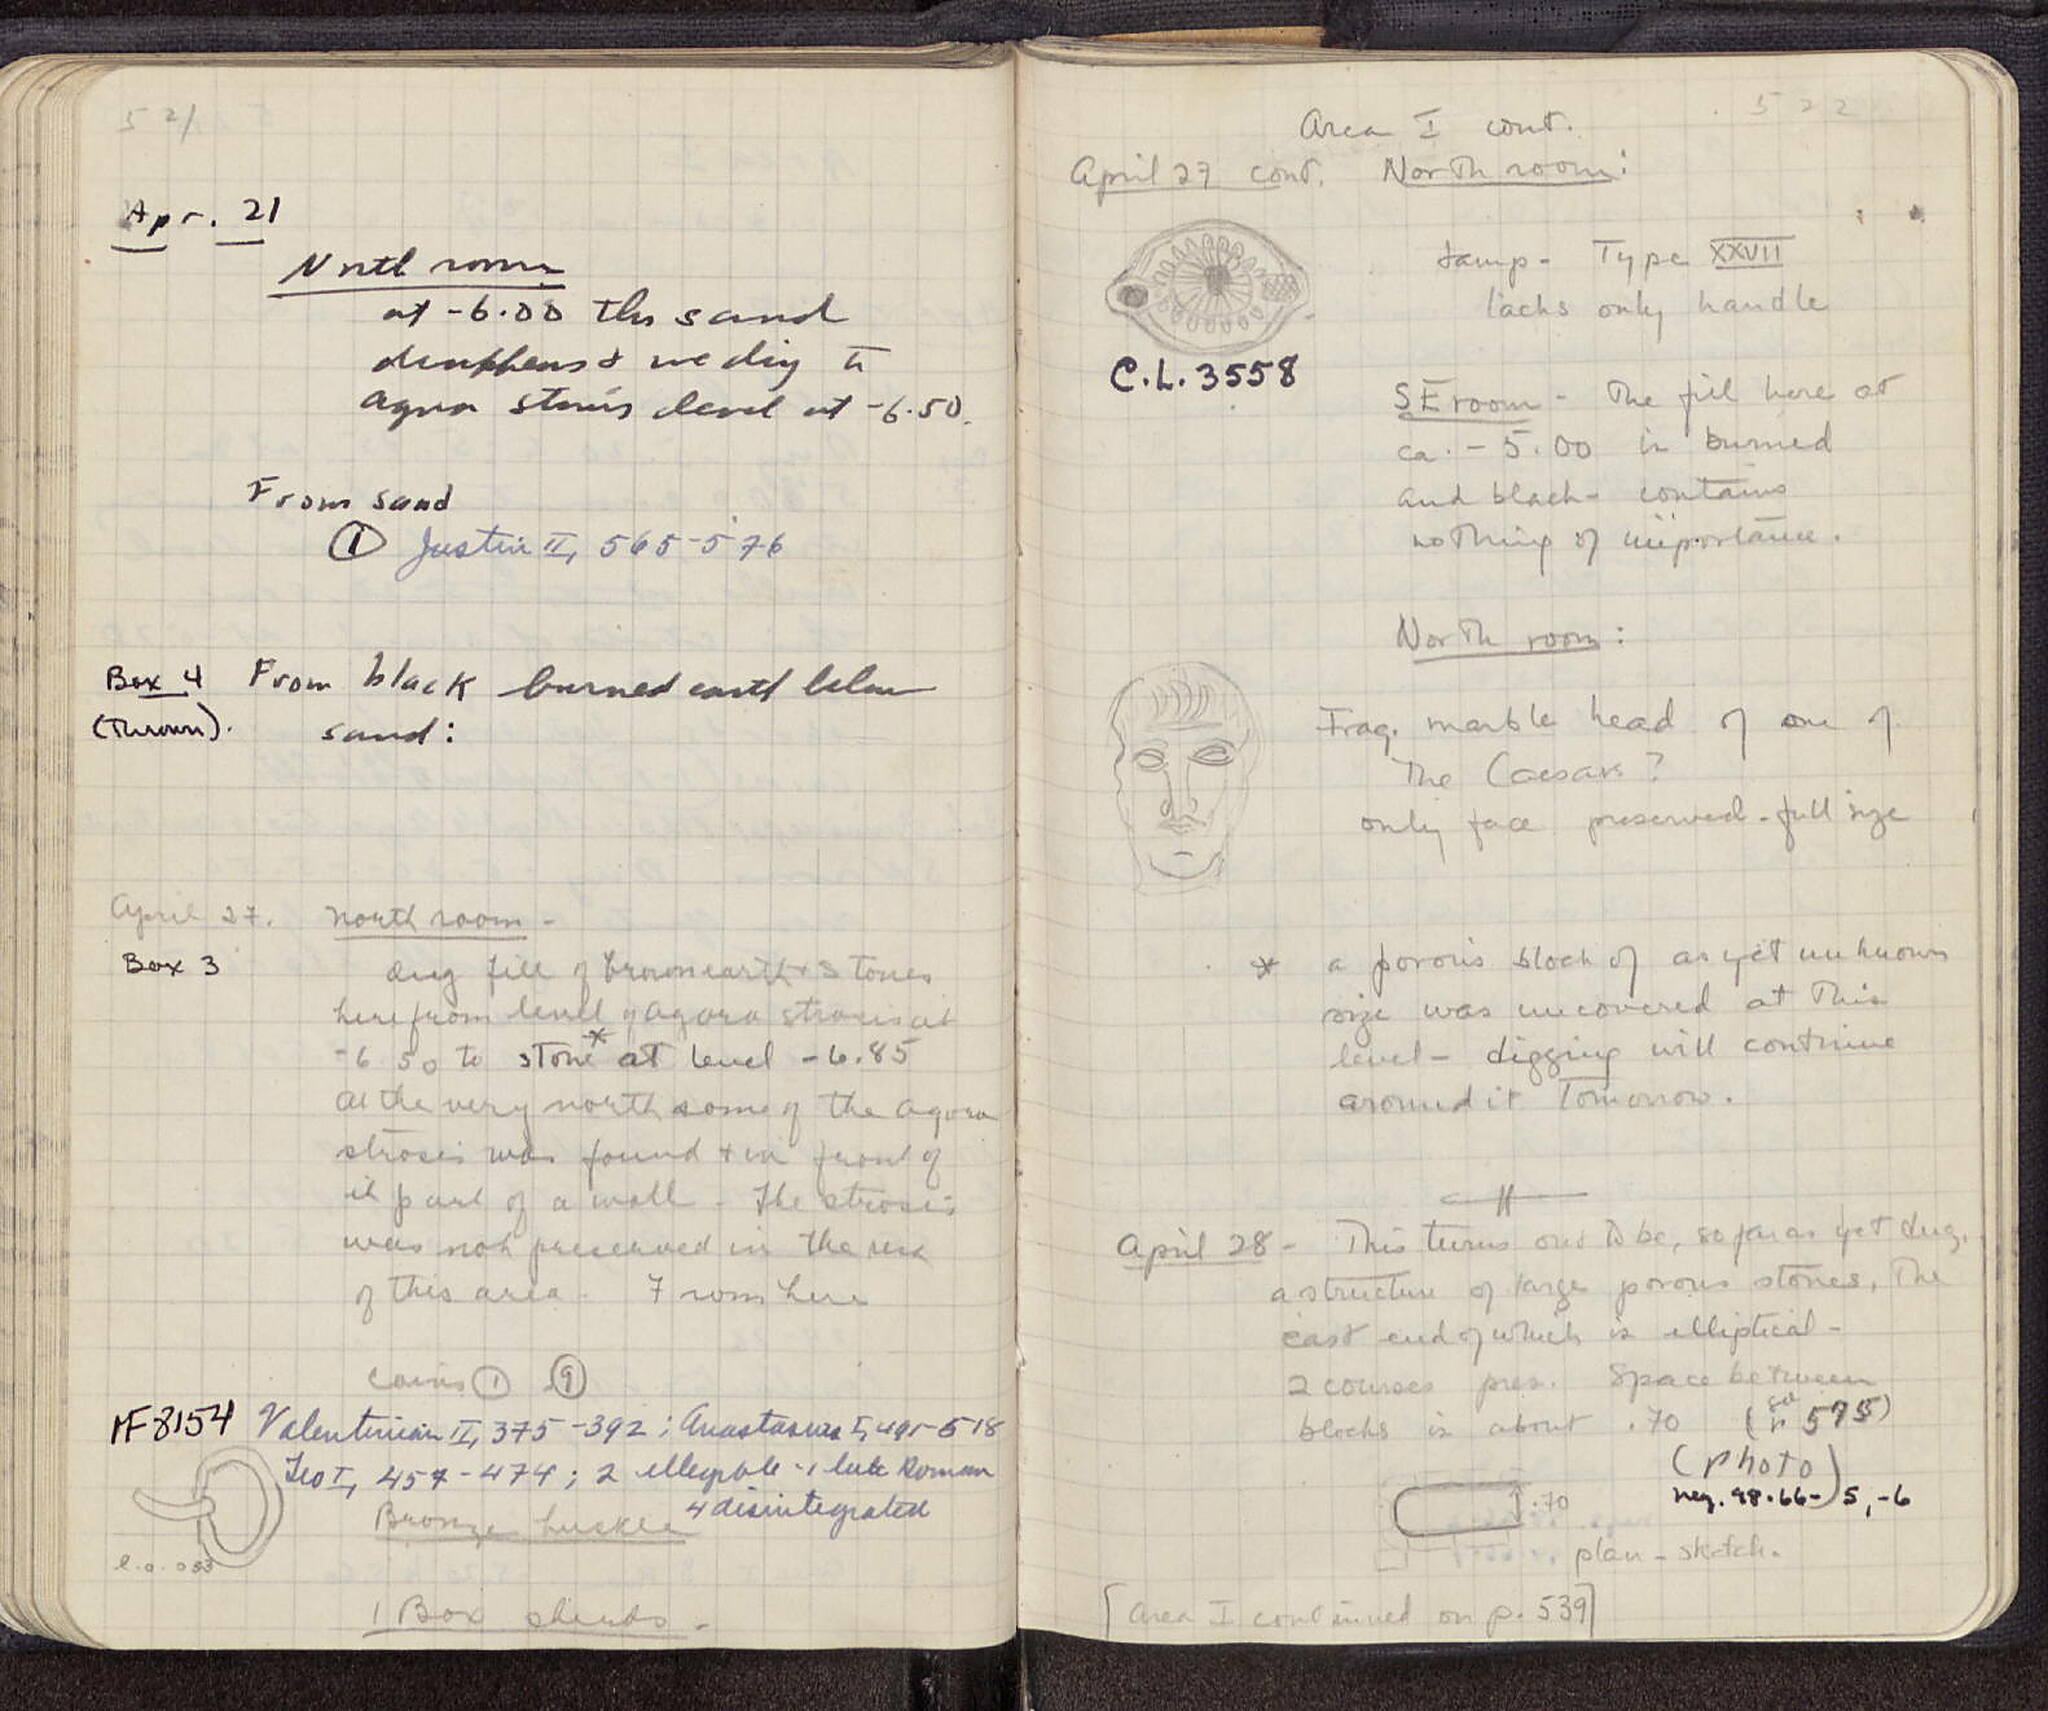 521
Apr. 21
North room
at -6.00 the sand
deepens & we dig to
agora strosis level at -6.50.
From sand
① Justin II, 565-576
Box 4 From black burned earth below
(Thrown). sand:
April 27. north room -
Box 3
dug fill of brown earth & stones
here from level of agora strosis at
-6.50 to stone* at level -6.85
At the very north some of the agora
strosis was found & in front of
it part of a wall - The strosis
was not preserved in the rest
of this area. 7 rom here
coins ① ⑨
MF 8154 Valentinian II, 375-392; Anastasius I, 491-518
Leo I, 457-474; 2 illegible - 1 late Roman
4 disintegrated
Bronze buckle
l. 0.053
1 Box sherds -
522
Area I cont.
April 27 cont. North room:
Lamp - Type XXVII
lacks only handle
C.L. 3558
SE room - The fill here at
ca. - 5.00 is burned
and black - contains
nothing of importance.
North room:
Frag. marble head of one of
the Caesars?
only face preserved - full size
* a poros block of as yet unknown
size was uncovered at this
level - digging will continue
around it Tomorrow.
April 28 - This turns out to be, so far as yet dug,
a structure of large poros stones, The
east end of which is elliptical -
2 courses pres. Space between
blocks is about .70 (p 575)
(Photo)
neg. 98-66-5, -6
.70
plan - sketch.
[Area I continued on p. 539]